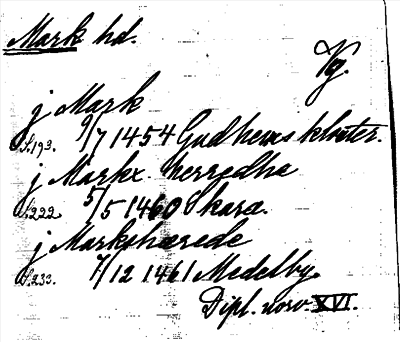 Mark hd.
Vg.
j Mark
S. 193. 9/7 1454 Gudhems kloster.
j Markx herredha
S. 222 5/5 1460 Skara.
j Markshærede
S. 233. 7/12 1461 Medelby
Dipl. norv. XVI.